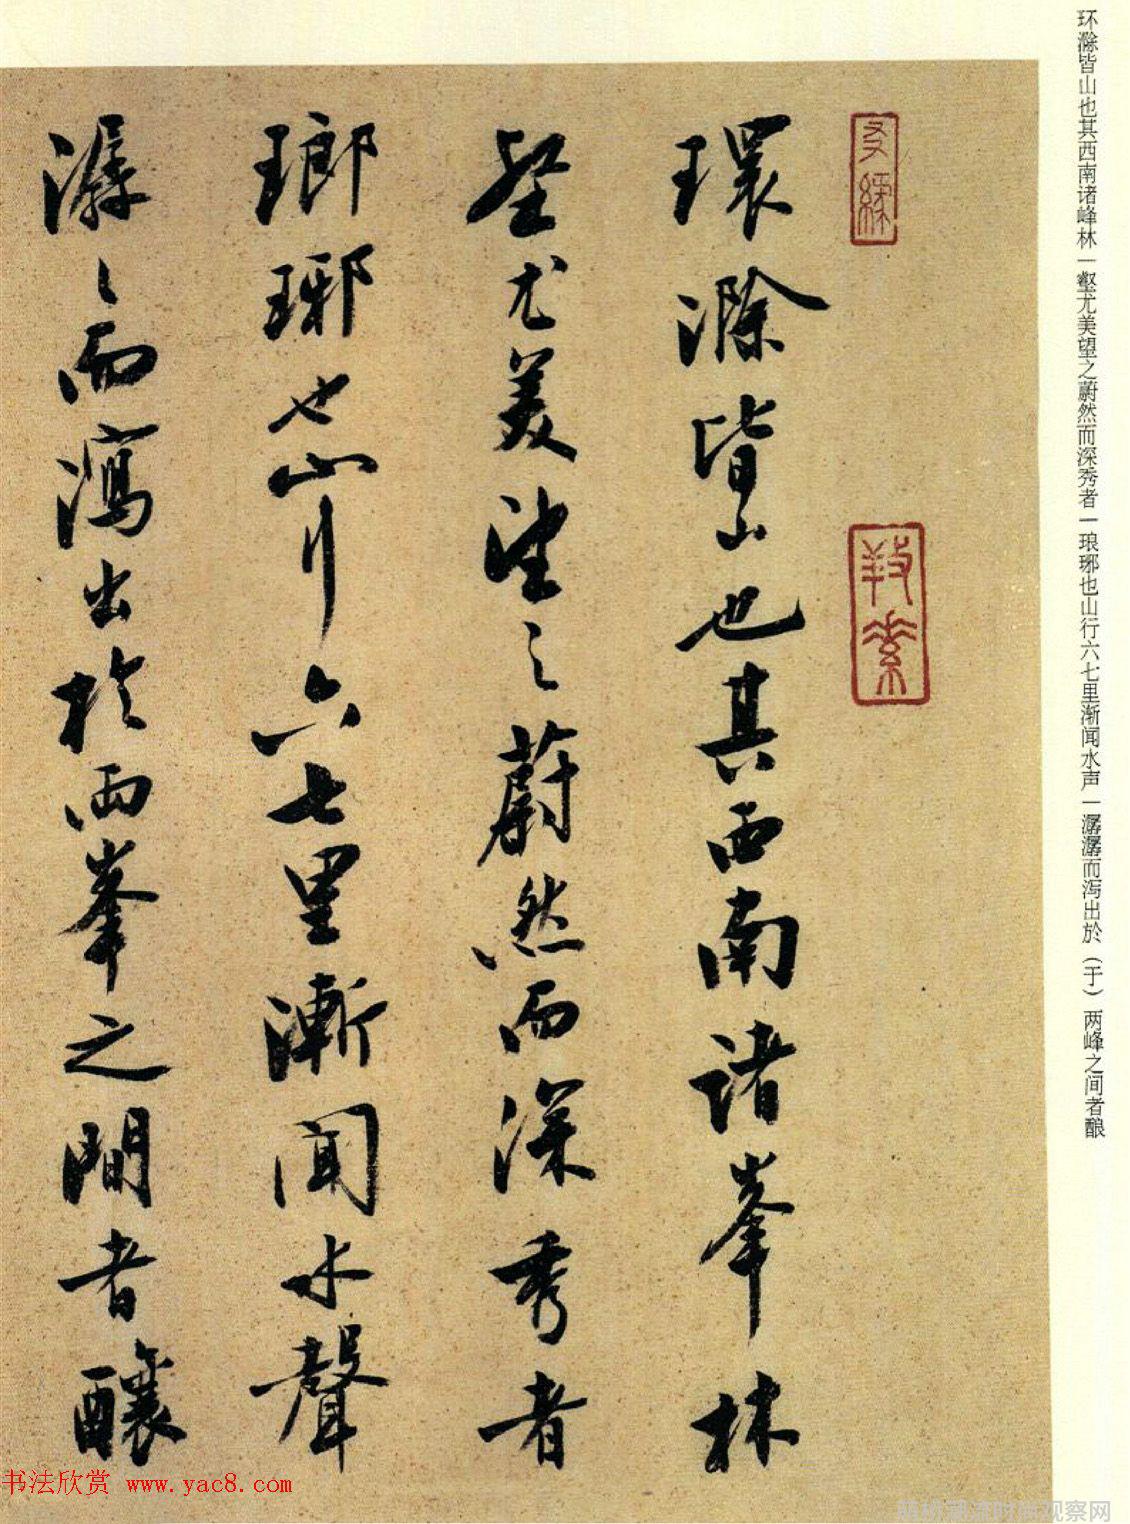 环滁皆山也其西南诸峰林一壑尤美望之蔚然而深秀者一琅琊也山行六七里渐闻水声一潺潺而泻出於（于）两峰之间者酿
環滁皆山也其西南諸峯林
壑尤美望之蔚然而深秀者
瑯琊也山行六七里漸聞水聲
潺〻而瀉出於兩峯之間者釀
书法欣赏 www.yac8.com
时尚观察网